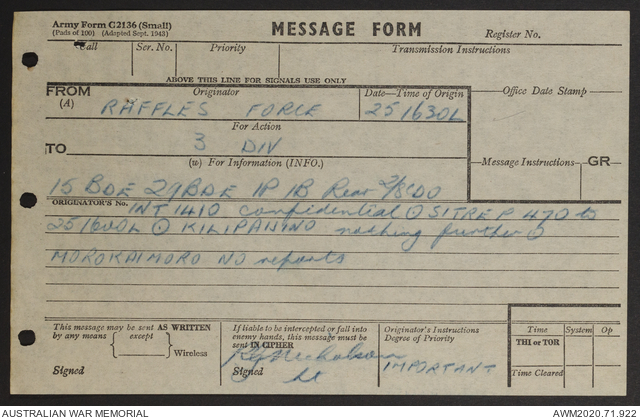 Army Form C2136 (Small)
(Pads of 100) (Adopted Sept. 1943)
MESSAGE FORM
Register No.
Call
Ser. No.
Priority
Transmission Instructions
ABOVE THIS LINE FOR SIGNALS USE ONLY
FROM
(A)
Originator
RAFFLES FORCE
Date—Time of Origin
251630L
Office Date Stamp
For Action
TO
3 DIV
(w) For Information (INFO.)
Message Instructions
GR
15 BDE 29 BDE 1P 1B Rear 2/8 CDO
ORIGINATOR'S No.
INT 1410 confidential ⊙ SITREP 470 to
251600L ⊙ KILIPANINO nothing further ⊙
MOROKAIMORO NO reports
This message may be sent AS WRITTEN
by any means
except
Wireless
Signed
If liable to be intercepted or fall into
enemy hands, this message must be
sent IN CIPHER
Signed
Nicholson
Lt
Originator's Instructions
Degree of Priority
IMPORTANT
Time
System
Op
THI or TOR
Time Cleared
AUSTRALIAN WAR MEMORIAL
AWM2020.71.922